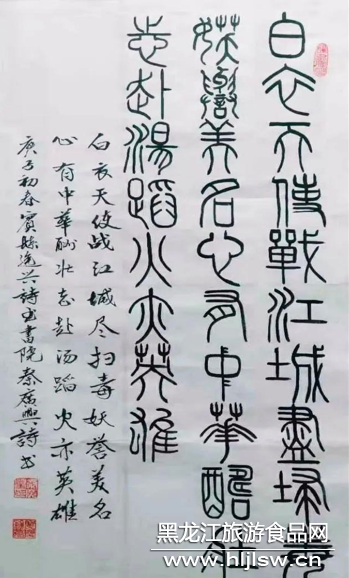 白衣天使戰江城盡埽毒
妖譽美名心有中華酬壯
志赴湯蹈火亦英雄
白衣天使战江城尽扫毒妖誉美名
心有中華酬壮志赴汤蹈火亦英雄
庚子初春賓縣逸兴詩画書院秦廣興詩书
黑龙江旅游食品网
http://www.hljlsw.cn